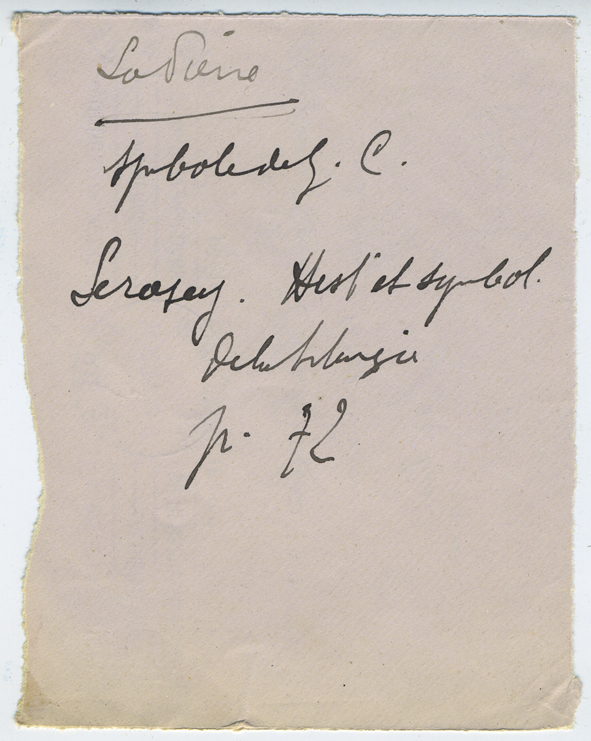 La Pierre
symbole de J. C.
Lerosey. Hist et symbol.
de la liturgie
p. 72